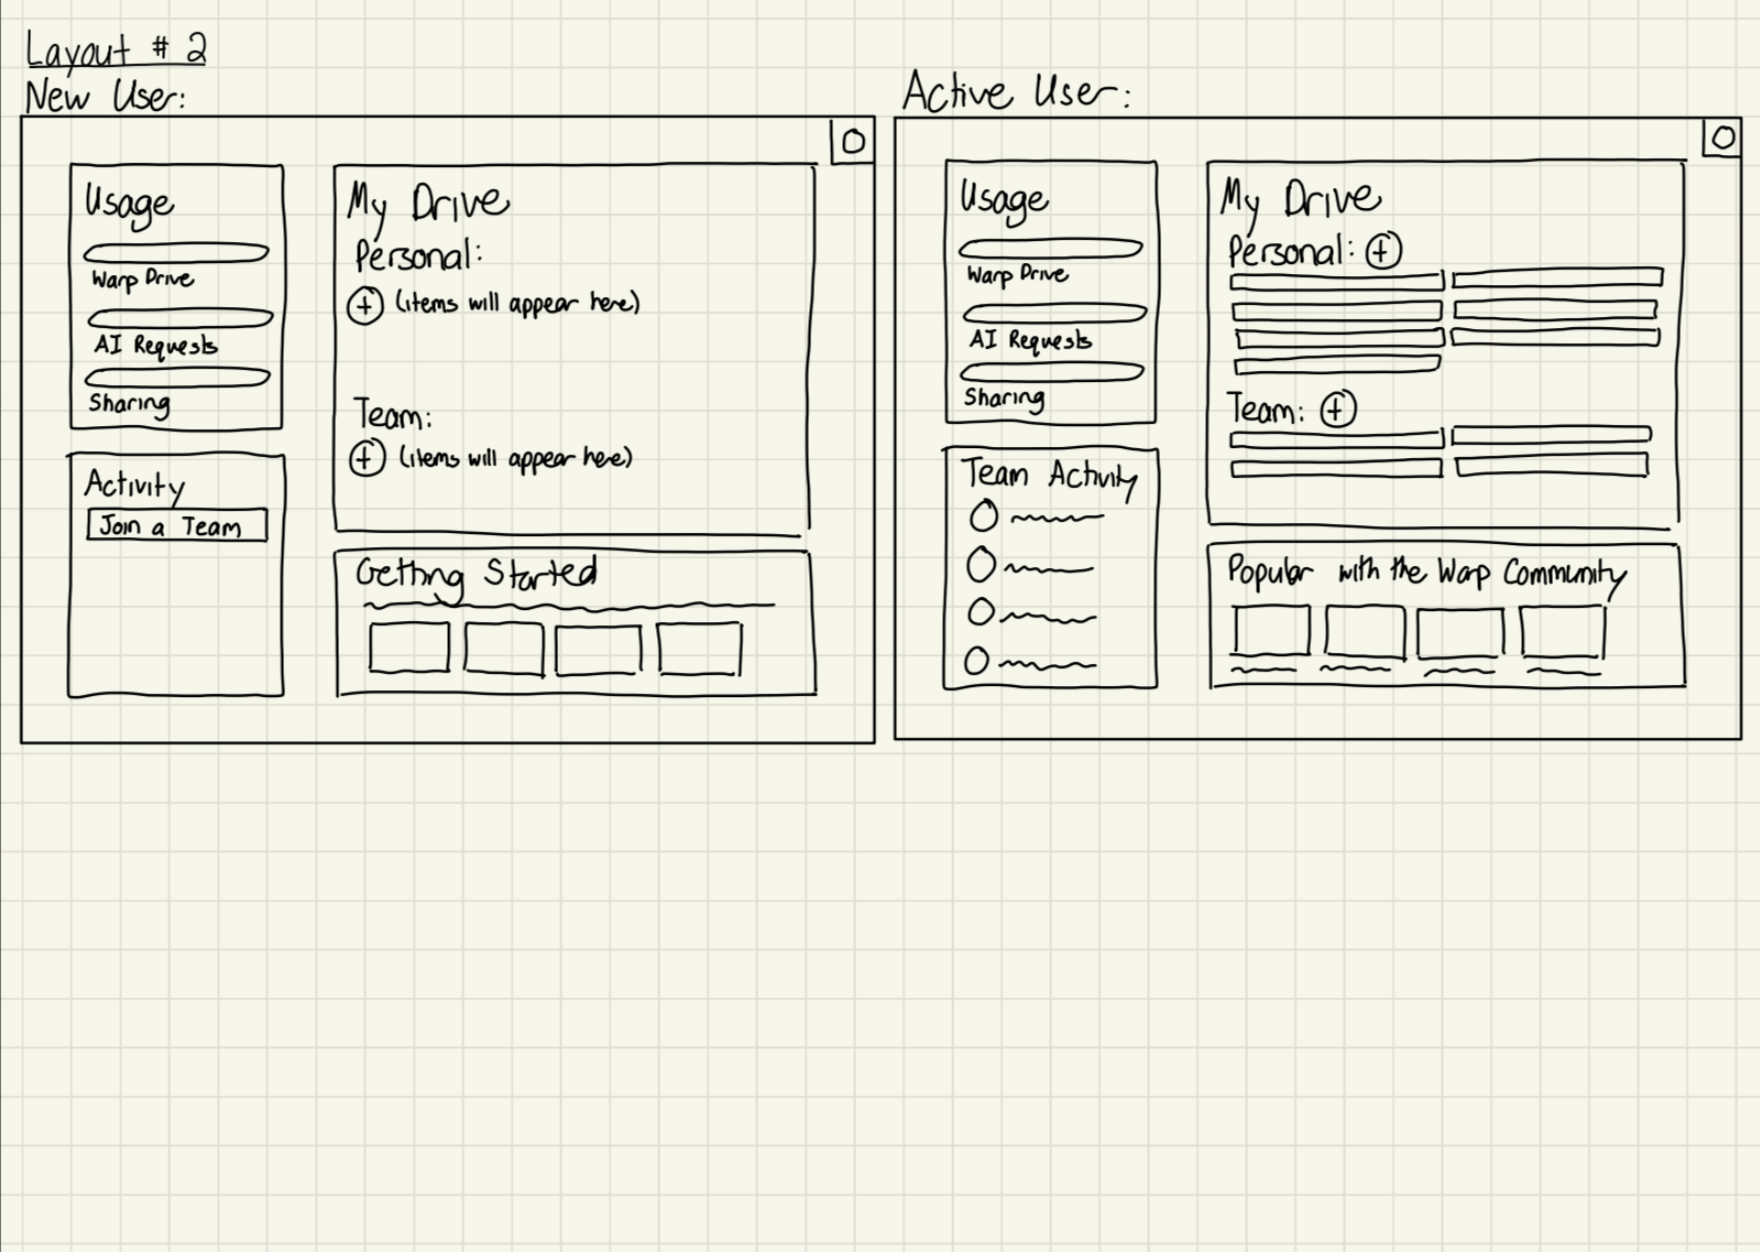 Layout # 2
New User:
Usage
Warp Drive
AI Requests
Sharing
Activity
Join a Team
My Drive
Personal:
+ (items will appear here)
Team:
+ (items will appear here)
Getting Started
Active User:
Usage
Warp Drive
AI Requests
Sharing
Team Activity
My Drive
Personal: +
Team: +
Popular with the Warp Community